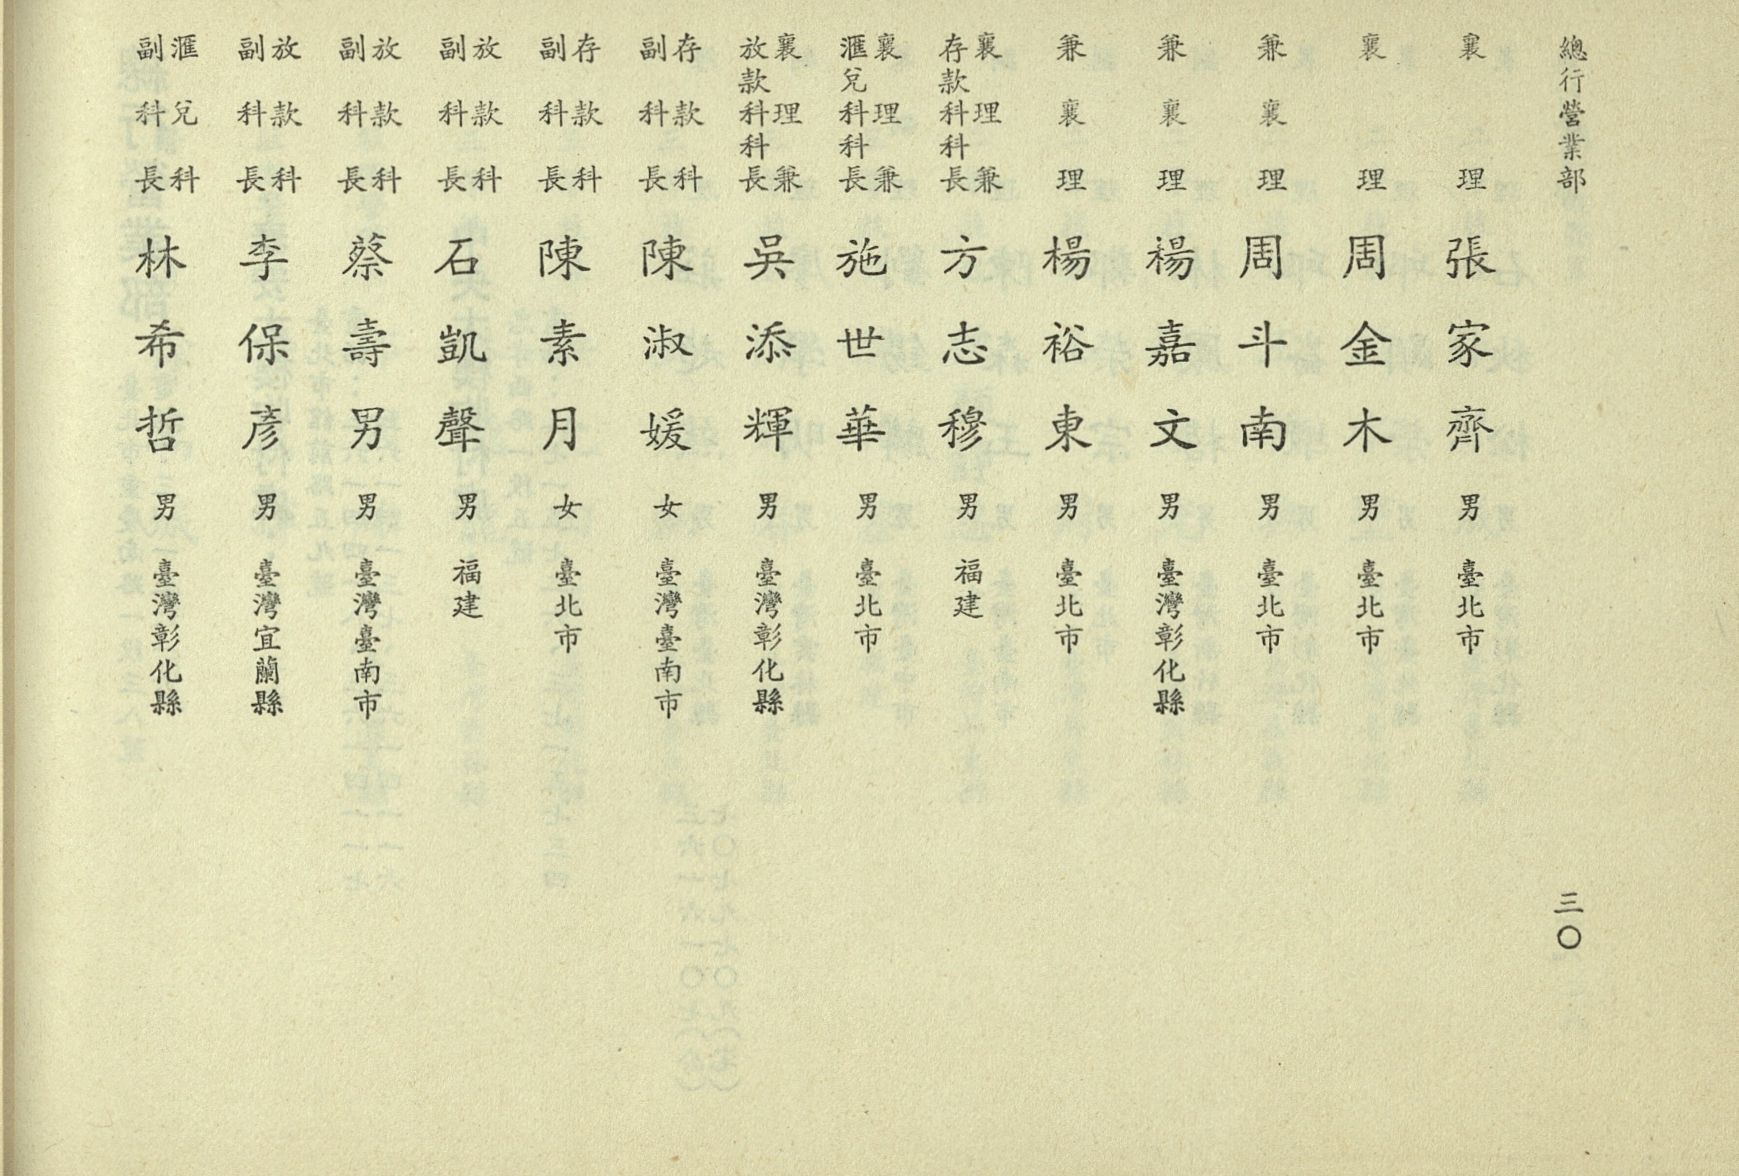 總行營業部
三〇
襄理 張家齊 男 臺北市
襄理 周金木 男 臺北市
兼襄理 周斗南 男 臺北市
兼襄理 楊嘉文 男 臺灣彰化縣
兼襄理 楊裕東 男 臺北市
襄理兼存款科科長 方志穆 男 福建
襄理兼滙兌科科長 施世華 男 臺北市
襄理兼放款科科長 吳添輝 男 臺灣彰化縣
存款科副科長 陳淑媛 女 臺灣臺南市
存款科副科長 陳素月 女 臺北市
放款科副科長 石凱聲 男 福建
放款科副科長 蔡壽男 男 臺灣臺南市
放款科副科長 李保彥 男 臺灣宜蘭縣
滙兌科副科長 林希哲 男 臺灣彰化縣